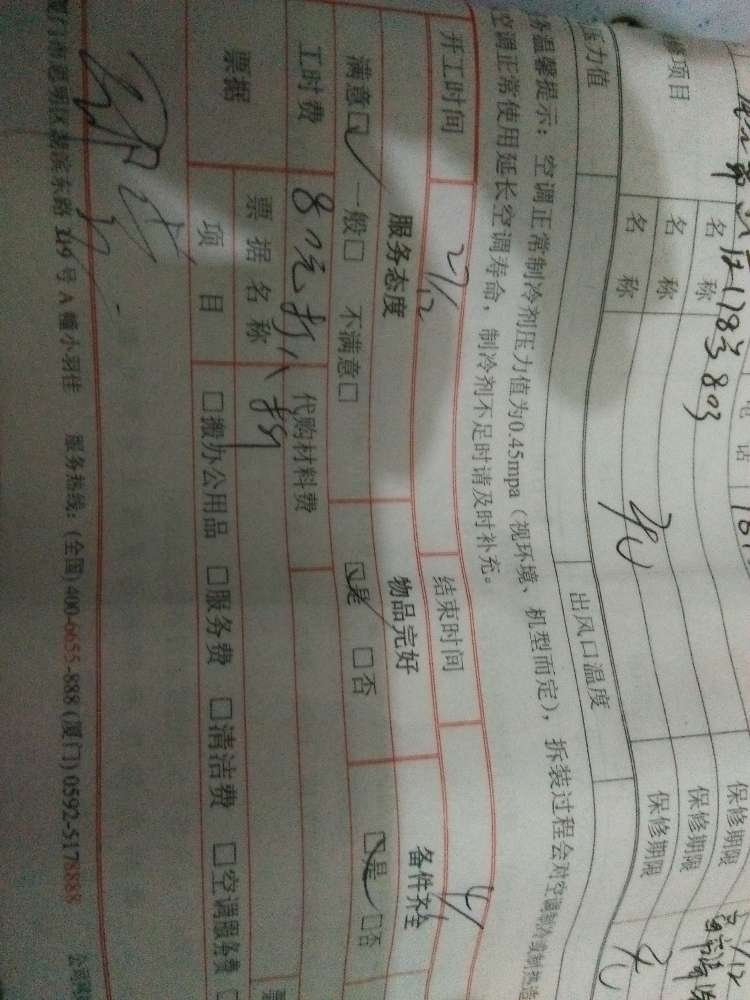 电 话
名 称
修项目 名 称 保修期限
名 称 保修期限
保修期限
压力值 出风口温度
温馨提示：空调正常制冷剂压力值为0.45mpa（视环境、机型而定），拆装过程会对空调制冷
空调正常使用延长空调寿命，制冷剂不足时请及时补充。
开工时间 27/12 结束时间
服务态度 物品完好 备件齐全
满意☑ 一般□ 不满意□ ☑是 □否 ☑是 □否
工时费 80元打八折 代购材料费
票据 票 据 名 称
项 目 □搬办公用品 □服务费 □清洁费 □空调服务费 □
厦门市思明区湖滨东路 319 号 A 幢小羽佳 服务热线：(全国) 400-6655-888 (厦门) 0592-5178888 公司网